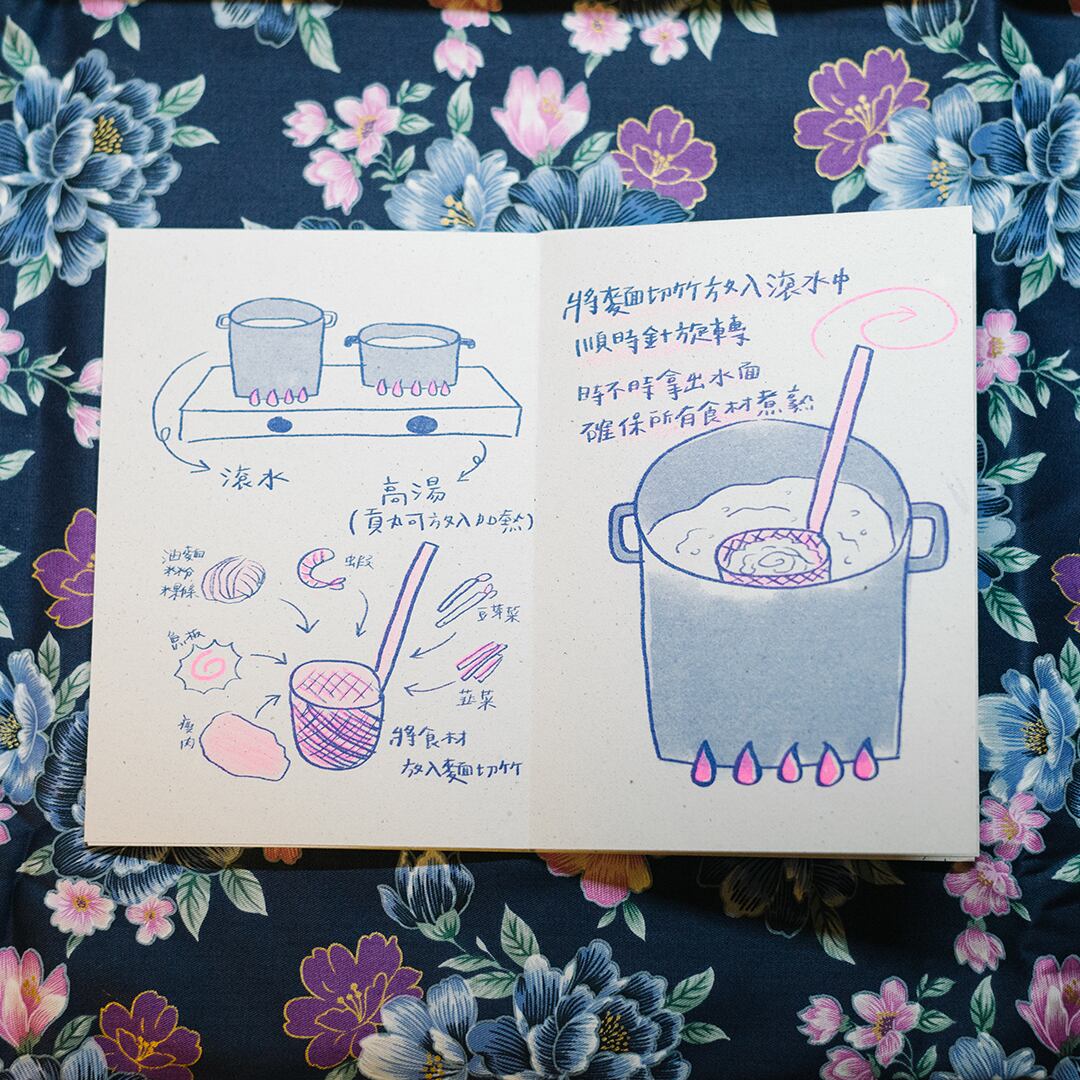 滾水
高湯
(貢丸可放入加熱)
油麵
米粉
粿條
蝦
豆芽菜
魚板
韭菜
瘦肉
將食材
放入麵切竹
將麵切竹放入滾水中
順時針旋轉
時不時拿出水面
確保所有食材煮熟